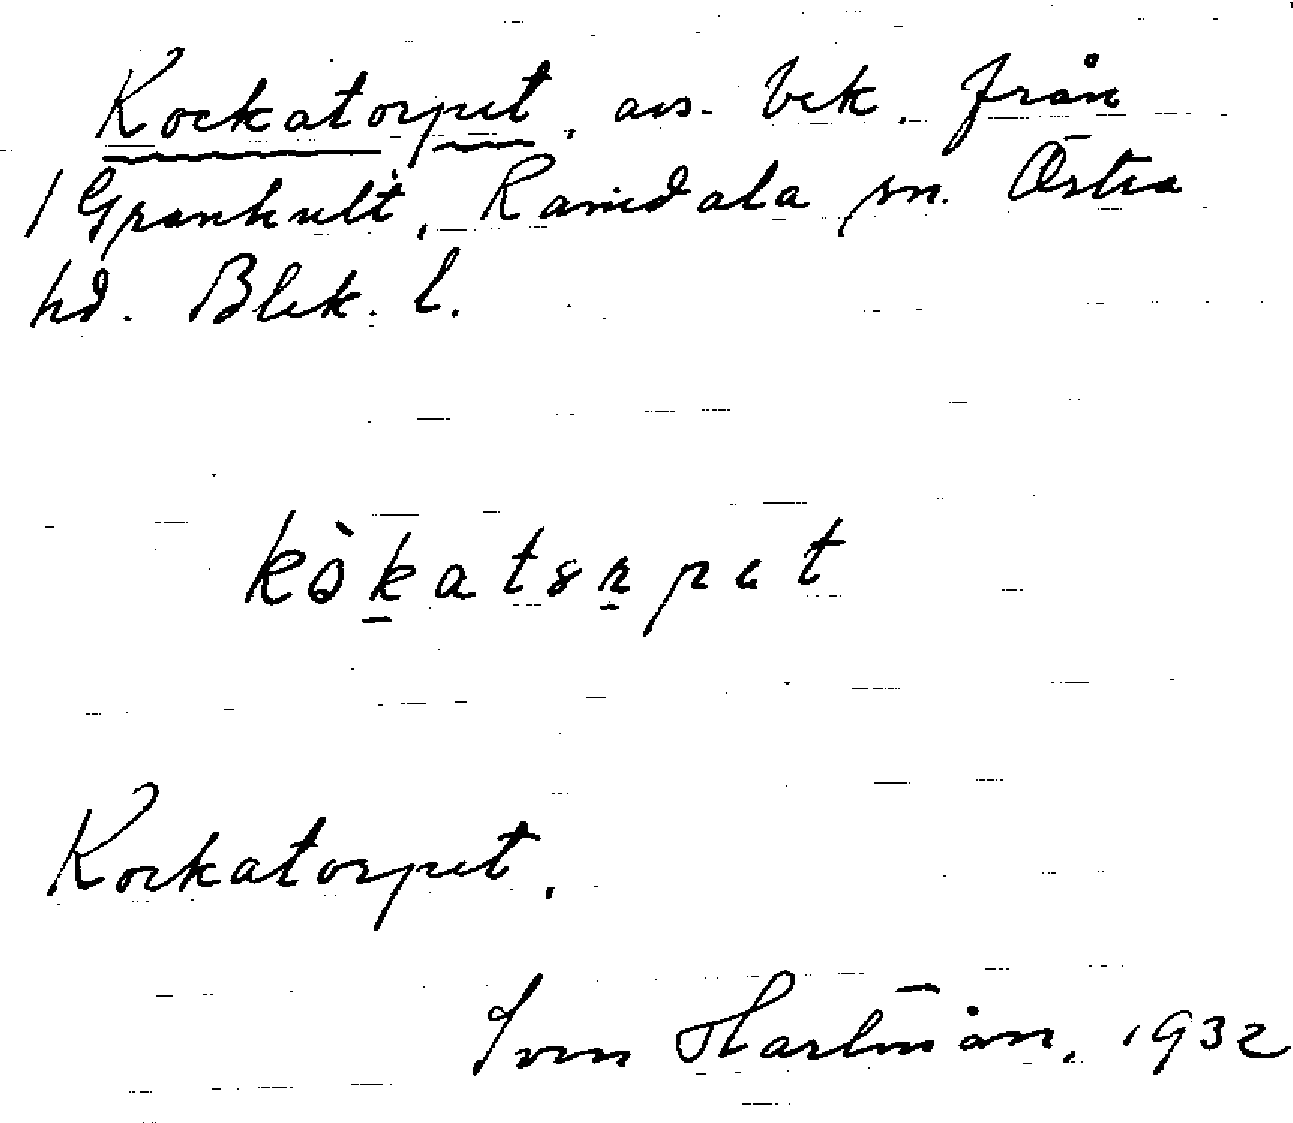 Kockatorpet, avs. bek. från
/ Grankult, Ramdala sn. Östra
hd. Blek. l.
kòkatorpet
Kockatorpet.
Sven Hartman, 1932